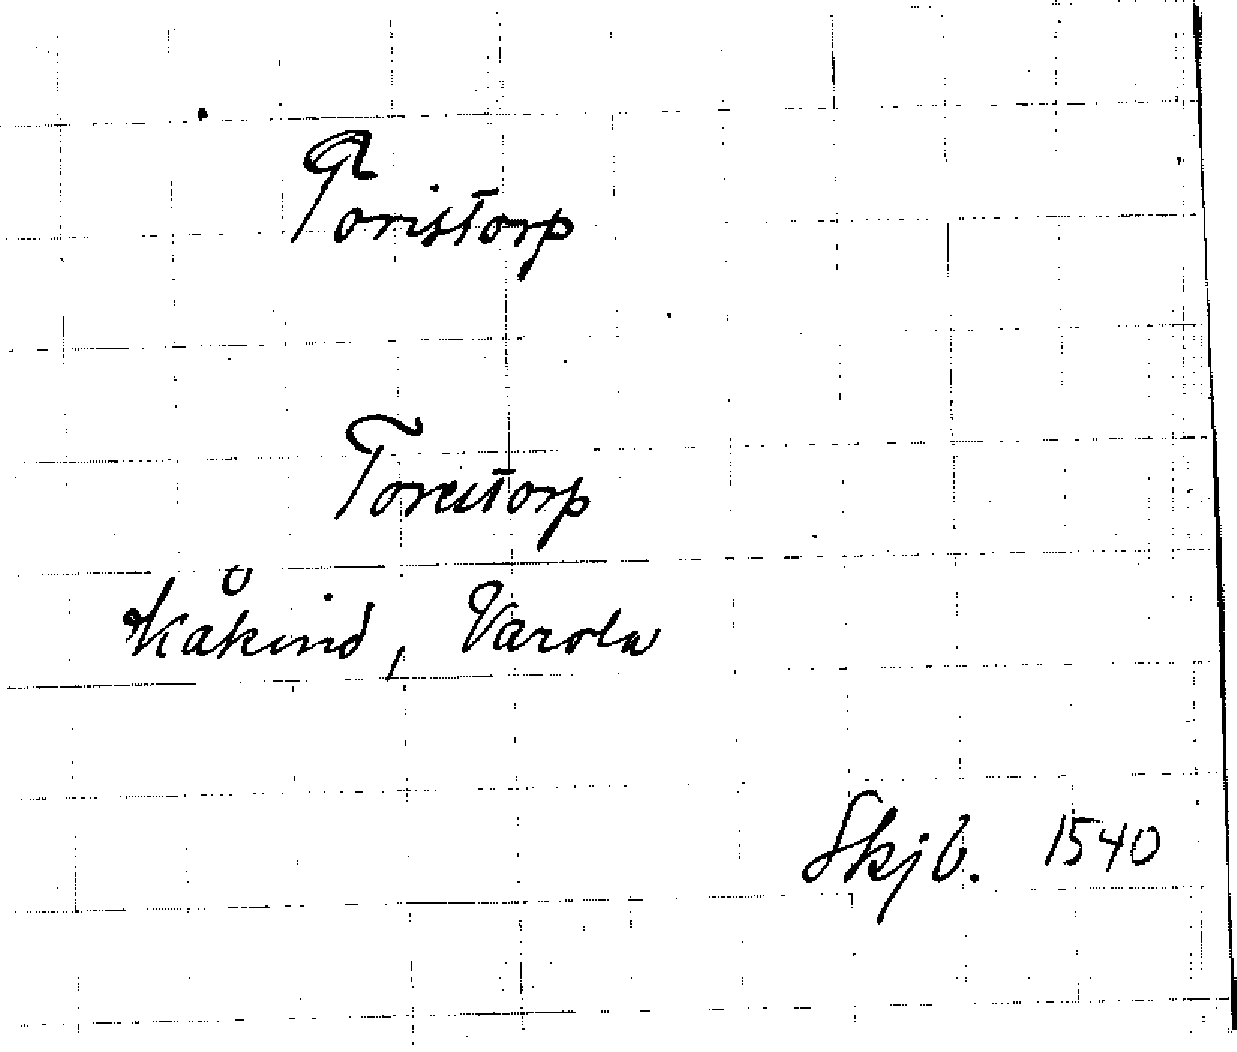 Toristorp
Torestorp
Kåkind, Varola
Skjb. 1540